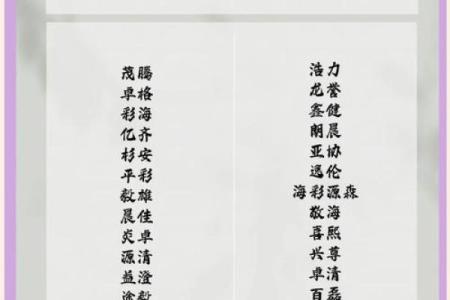 茂腾
卓格
彩海
亿齐
杉安
平彩
毅雄
晨佳
炎卓
源清
益澄
途毅
浩力
龙誉
鑫健
朗晨
亚协
逸伦
海彩源森
敬海
喜熙
兴尊
卓清
百磊